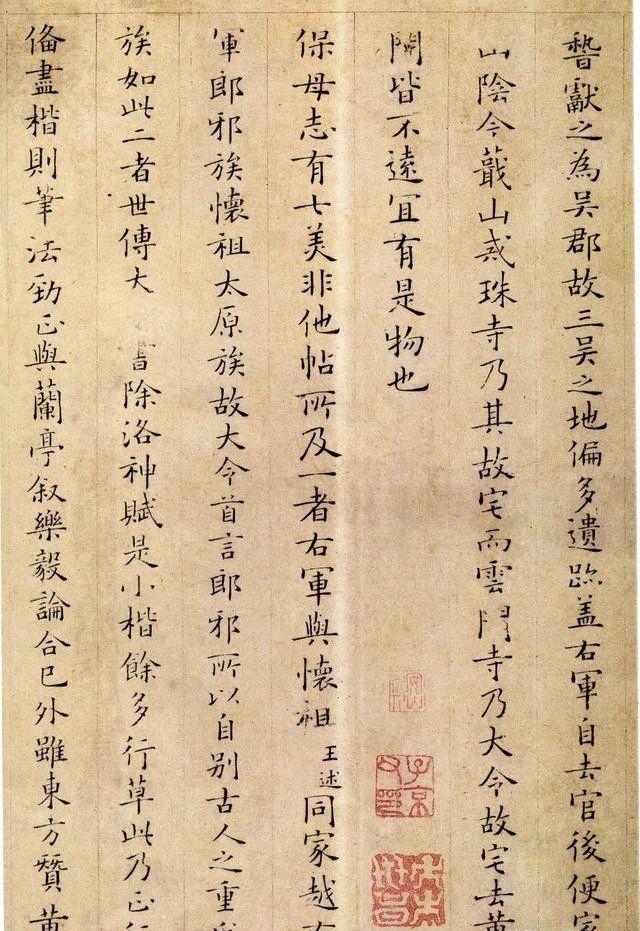 晉獻之為吳郡故三吳之地偏多遺跡盖右軍自去官後便家
山陰今蕺山戒珠寺乃其故宅而雲門寺乃大令故宅去黄
閍皆不遠宜有是物也
保母志有七美非他帖所及一者右軍與懷祖王述同家越右
軍郎邪族懷祖太原族故大令首言郎邪所以自别古人之重
族如此二者世傳大 書除洛神賦是小楷餘多行草此乃正行
俻盡楷則筆法勁正與蘭亭叙樂毅論合已外雖東方贊黄